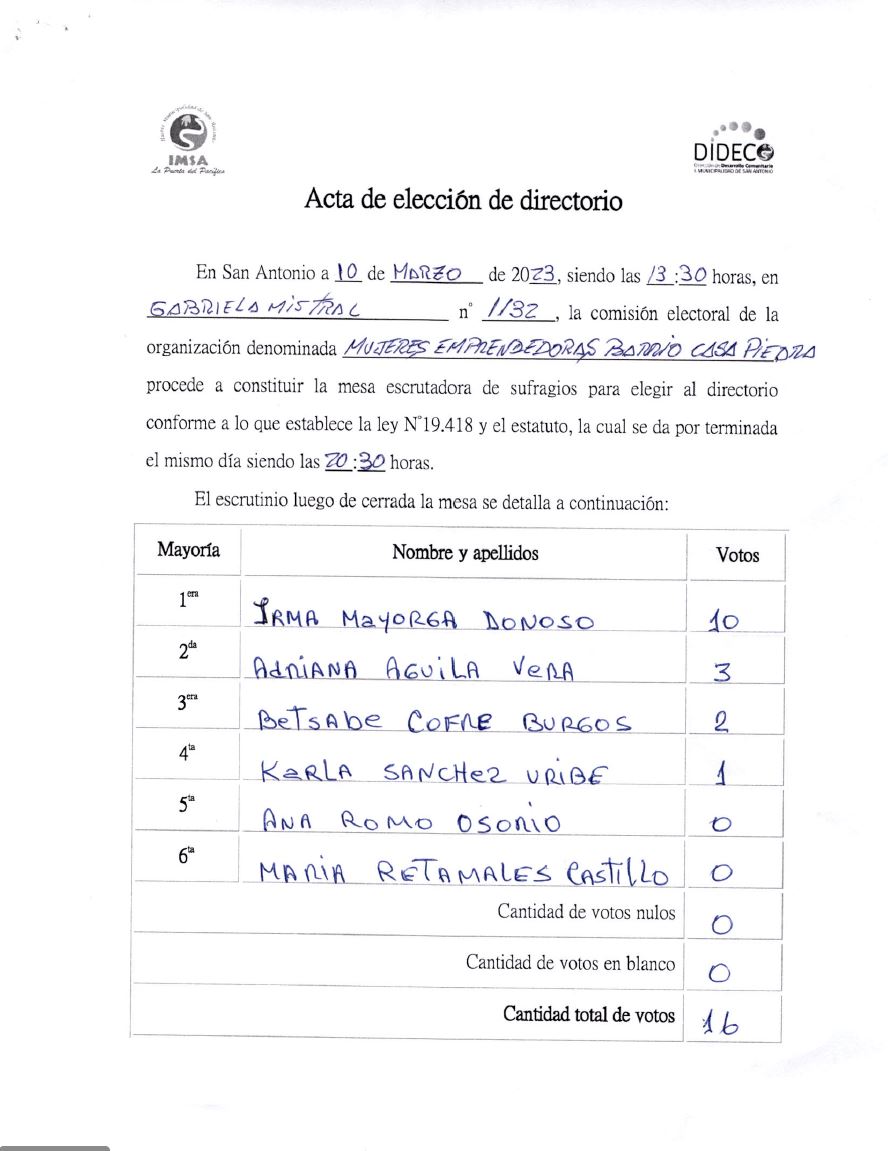 IMSA
La Puerta del Pacífico
DIDECO
Dirección de Desarrollo Comunitario
I. MUNICIPALIDAD DE SAN ANTONIO
Acta de elección de directorio
En San Antonio a 10 de MARZO de 2023, siendo las 13:30 horas, en
GABRIELA MISTRAL n° 1132, la comisión electoral de la
organización denominada MUJERES EMPRENDEDORAS BARRIO CASA PIEDRA
procede a constituir la mesa escrutadora de sufragios para elegir al directorio
conforme a lo que establece la ley N°19.418 y el estatuto, la cual se da por terminada
el mismo día siendo las 20:30 horas.
El escrutinio luego de cerrada la mesa se detalla a continuación:
Mayoría Nombre y apellidos Votos
1era IRMA MayORGA DONOSO 10
2da AdRiANA AGUiLA VeRA 3
3era BeTsAbe COFRE BURGOS 2
4ta KaRLA SANCHez URIBE 1
5ta ANA ROMO OSORIO 0
6ta MARiA RETAMALES CASTiLLO 0
Cantidad de votos nulos 0
Cantidad de votos en blanco 0
Cantidad total de votos 16